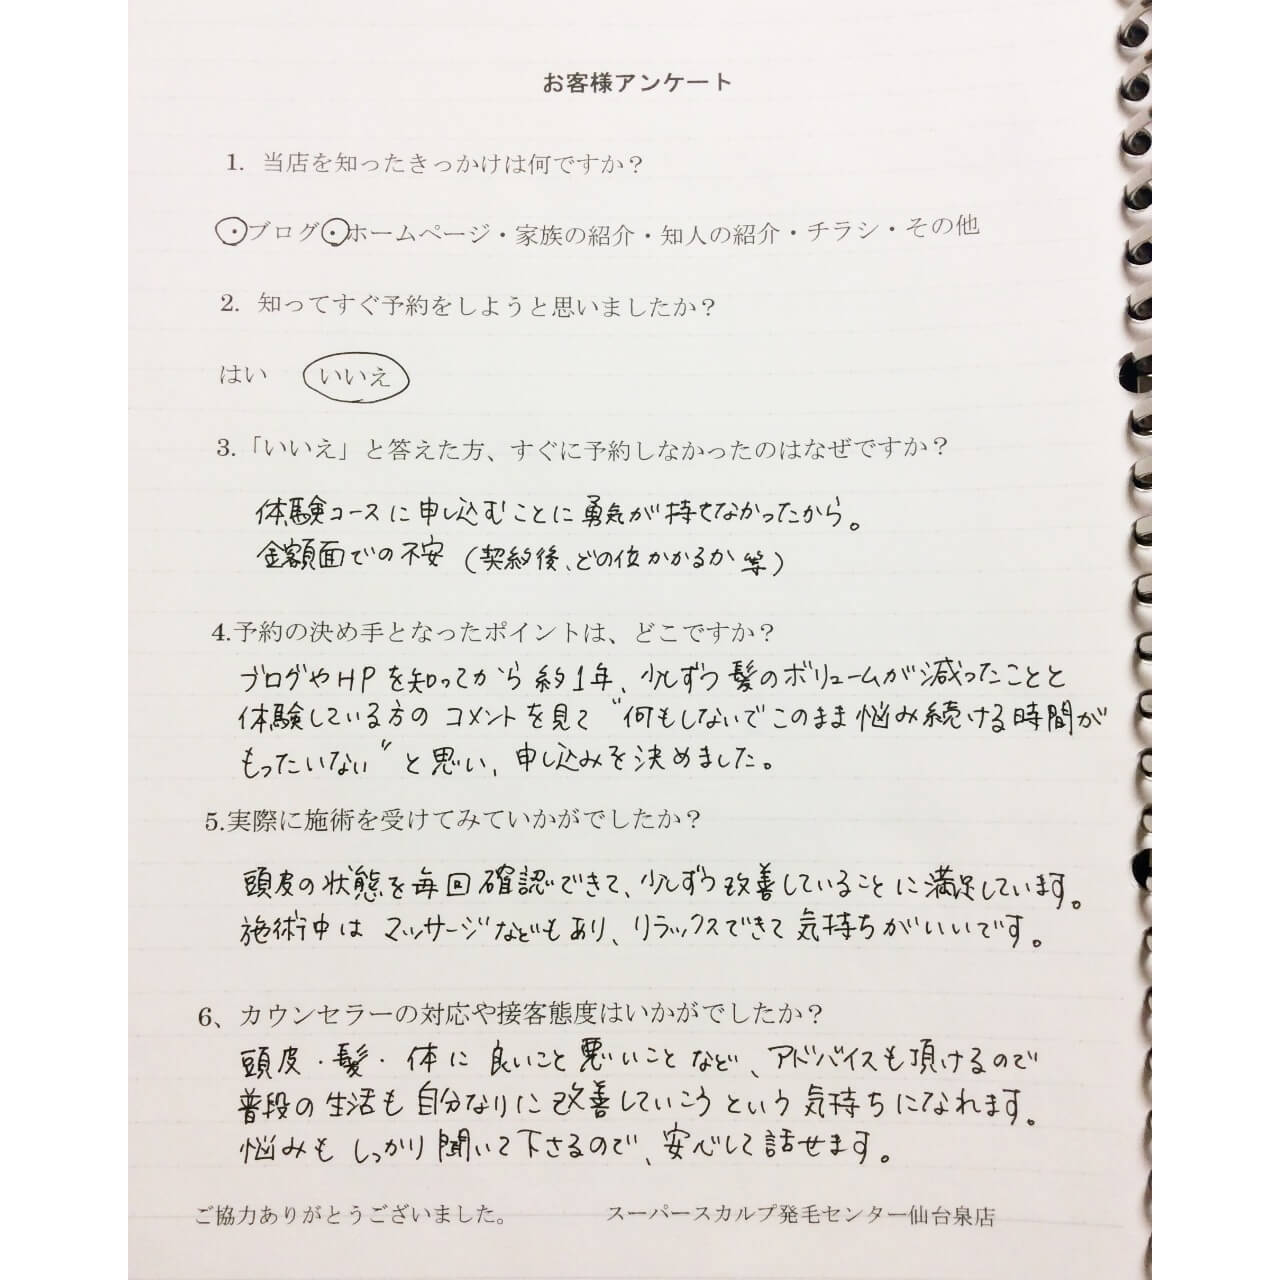 お客様アンケート
1. 当店を知ったきっかけは何ですか?
・ブログ・ホームページ・家族の紹介・知人の紹介・チラシ・その他
2. 知ってすぐ予約をしようと思いましたか?
はい いいえ
3.「いいえ」と答えた方、すぐに予約しなかったのはなぜですか?
体験コースに申し込むことに勇気が持てなかったから。
金額面での不安(契約後、どの位かかるか等)
4.予約の決め手となったポイントは、どこですか?
ブログやHPを知ってから約1年、少しずつ髪のボリュームが減ったことと
体験している方のコメントを見て"何もしないでこのまま悩み続ける時間が
もったいない"と思い、申し込みを決めました。
5.実際に施術を受けてみていかがでしたか?
頭皮の状態を毎回確認できて、少しずつ改善していることに満足しています。
施術中はマッサージなどもあり、リラックスできて気持ちがいいです。
6、カウンセラーの対応や接客態度はいかがでしたか?
頭皮・髪・体に良いこと悪いことなど、アドバイスも頂けるので
普段の生活も自分なりに改善していこうという気持ちになれます。
悩みもしっかり聞いて下さるので、安心して話せます。
ご協力ありがとうございました。 スーパースカルプ発毛センター仙台泉店